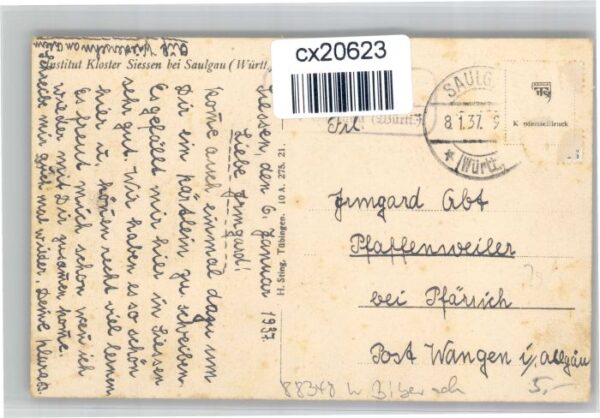 Institut Kloster Siessen bei Saulgau (Württ.
Siessen, den 6. Januar 1937.
Liebe Irmgard!
Kome auch einmal dazu um
Dir ein Kärtlein zu schreiben
Es gefällt mir hier in Siessen
sehr gut. Wir haben es so schön
hier u. könen recht viel lernen
Es freut mich schon wen ich
wieder mit Dir zusamen kome.
Schreibe mir auch mal wieder. Deine
Auf Wiedersehn
H. Sting, Tübingen. 10 A. 275. 21.
cx20623
SAULG
8.1.37. 9
(Württ.)
(Württ)
Frl.
Irmgard Abt
Pfaffenweiler
bei Pfärrich
Post Wangen i/allgäu
88348
5,-